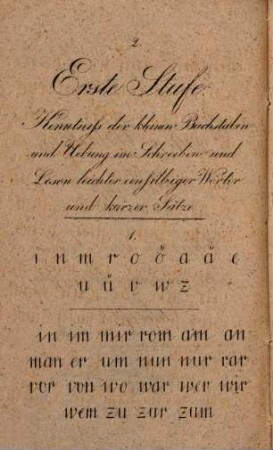 2.
Erste Stufe.
Kenntniß der kleinen Buchstaben
und Uebung im Schreiben und
Lesen leichter einsilbiger Wörter
und kurzer Sätze.
1.
i n m r o ö a ä e
u ü v w z
in im mir rom am an
man er um nun nur rar
vor von wo war wer wir
wem zu zur zum